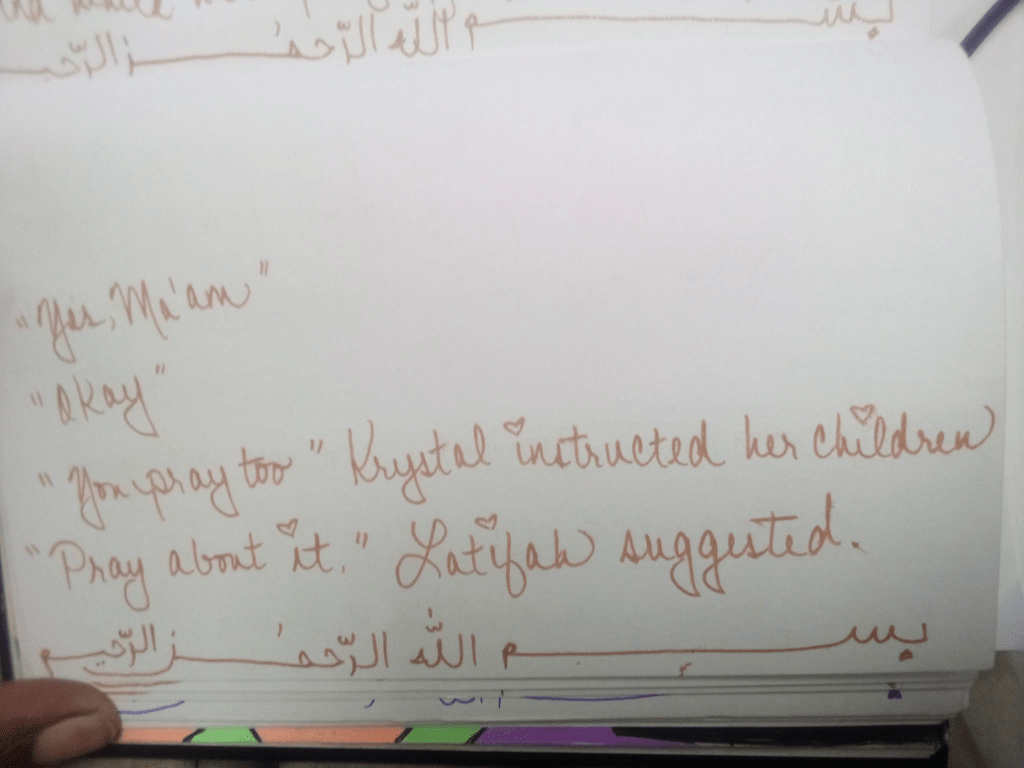 بسم الله الرّحمٰن الرّحيـ
"Yes, Ma'am"
"Okay"
"You pray too" Krystal instructed her children
"Pray about it." Latifah suggested.
بسم الله الرّحمٰن الرّحيم